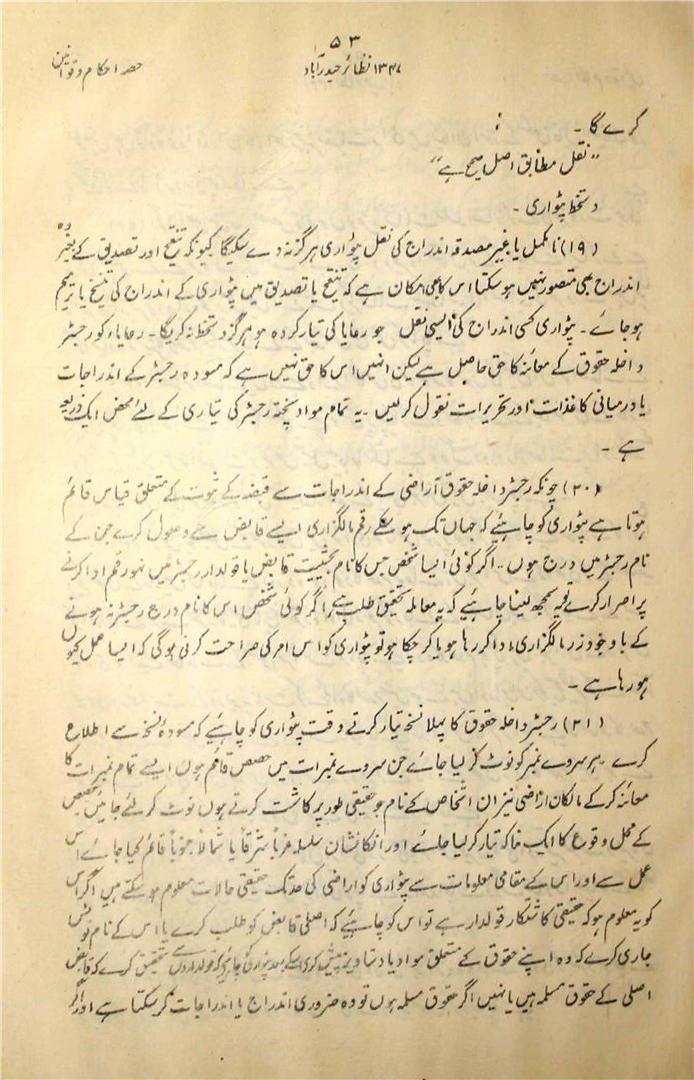 ۵۳
۱۳۴۷ نظائر حیدرآباد
حصہ احکام و قوانین
کرے گا ۔
”نقل مطابق اصل صحیح ہے“
دستخط پٹواری ۔
(۱۹) نامکمل یا بغیر مصدقہ اندراج کی نقل پٹواری ہرگز نہ دے سکیگا کیونکہ تنقیح اور تصدیق کے بغیر وہ
اندراج بھی متصور نہیں ہو سکتا اس کا بھی امکان ہے کہ تنقیح یا تصدیق میں پٹواری کے اندراج کی تنسیخ یا ترمیم
ہو جائے ۔ پٹواری کسی اندراج کی ایسی نقل جو رعایا کی تیار کردہ ہو ہرگز دستخط نہ کریگا ۔ رعایاء کو رجسٹر
داخلہ حقوق کے معائنہ کا حق حاصل ہے لیکن انہیں اس کا حق نہیں ہے کہ مسودہ رجسٹر کے اندراجات
یا درمیانی کاغذات اور تحریرات نقول کر لیں ۔ یہ تمام مواد پختہ رجسٹر کی تیاری کے لئے محض ایک ذریعہ
ہے ۔
(۲۰) چونکہ رجسٹر داخلہ حقوق آراضی کے اندراجات سے قبضہ کے ثبوت کے متعلق قیاس قائم
ہوتا ہے پٹواری کو چاہئیے کہ جہاں تک ہو سکے رقم مالگزاری ایسے قابض سے وصول کرے جن کے
نام رجسٹر میں درج ہوں ۔ اگر کوئی ایسا شخص جس کا نام بحیثیت قابض یا قولدار رجسٹر میں نہو رقم ادا کرنے
پر اصرار کرے تو یہ سمجھ لینا چاہئیے کہ یہ معاملہ تحقیق طلب ہے اگر کوئی شخص اس کا نام درج رجسٹر نہ ہونے
کے باوجود زر مالگزاری ادا کر رہا ہو یا کر چکا ہو تو پٹواری کو اس امر کی صراحت کرنی ہوگی کہ ایسا عمل کیوں
ہو رہا ہے ۔
(۲۱) رجسٹر داخلہ حقوق کا پہلا نسخہ تیار کرتے وقت پٹواری کو چاہئیے کہ مسودہ نسخہ سے اطلاع
کرے ہر سروے نمبر کو نوٹ کر لیا جائے جن سروے نمبرات میں حصص قائم ہوں ایسے تمام نمبرات کا
معائنہ کر کے مالکان اراضی نیز ان اشخاص کے نام جو حقیقی طور پر کاشت کرتے ہوں نوٹ کر لئے جائیں حصص
کے محل وقوع کا ایک خاکہ تیار کر لیا جائے اور انکا نشان سلسلہ غرباً شرقاً یا شمالاً جنوباً قائم کیا جائے اس
عمل سے اور اس کے مقامی معلومات سے پٹواری کو اراضی کی حد تک حقیقی حالات معلوم ہو سکتے ہیں اگر اس
کو یہ معلوم ہو کہ حقیقی کاشتکار قولدار ہے تو اس کو چاہئیے کہ اصلی قابض کو طلب کرے یا اس کے نام نوٹس
جاری کرے کہ وہ اپنے حقوق کے متعلق مواد یا دستاویز پیش کرے اسکے بعد پٹواری کو چاہئیے کہ قولداروں سے تحقیق کرے کہ قابض
اصلی کے حقوق مسلمہ ہیں یا نہیں اگر حقوق مسلمہ ہوں تو وہ ضروری اندراج یا اندراجات کر سکتا ہے اور اگر